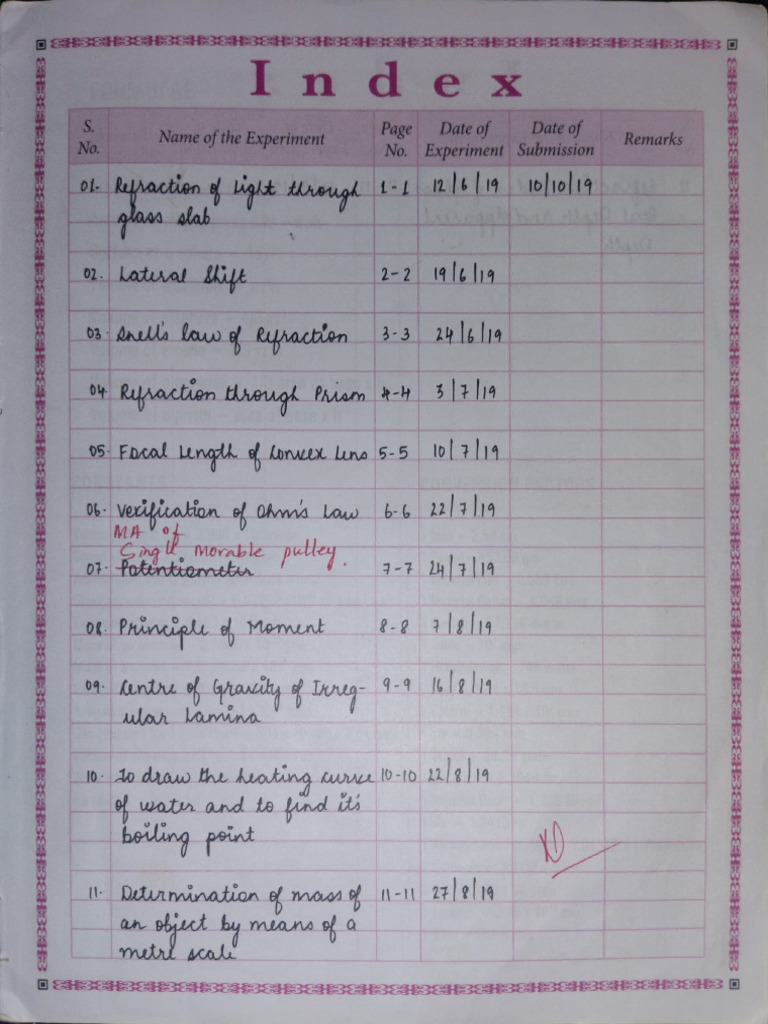 Index
S. No. Name of the Experiment Page No. Date of Experiment Date of Submission Remarks
01. Refraction of Light through 1-1 12/6/19 10/10/19
glass slab
02. Lateral Shift 2-2 19/6/19
03. Snell's law of Refraction 3-3 24/6/19
04 Refraction through Prism 4-4 3/7/19
05. Focal Length of Convex Lens 5-5 10/7/19
06. Verification of Ohm's Law 6-6 22/7/19
MA of
Single Movable pulley.
07. Potentiometer 7-7 24/7/19
08. Principle of Moment 8-8 7/8/19
09. Centre of Gravity of Irreg- 9-9 16/8/19
ular Lamina
10. To draw the heating curve 10-10 22/8/19
of water and to find it's
boiling point
11. Determination of mass of 11-11 27/8/19
an object by means of a
metre scale